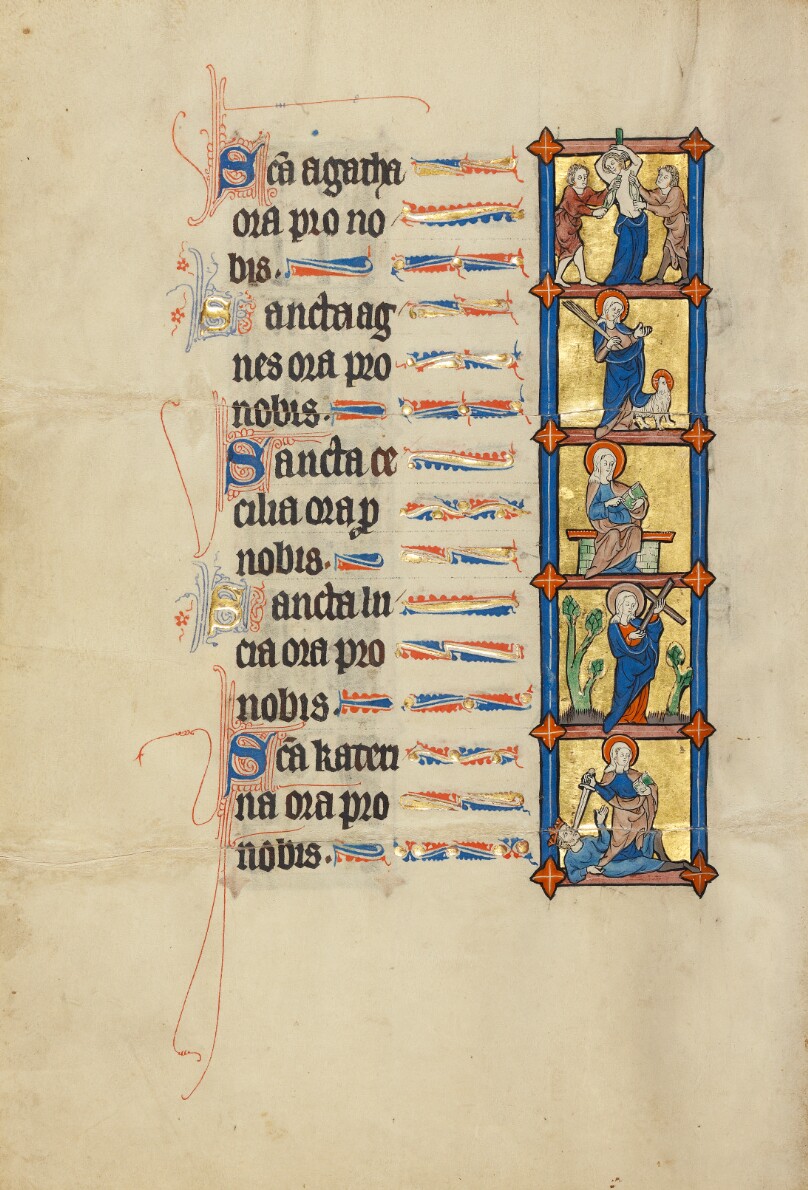 Sc̄a agatha
ora pro no
bis.
Sancta ag
nes ora pro
nobis.
Sancta ce
cilia ora ꝓ
nobis.
Sancta lu
cia ora pro
nobis.
Sc̄a kateri
na ora pro
nobis.